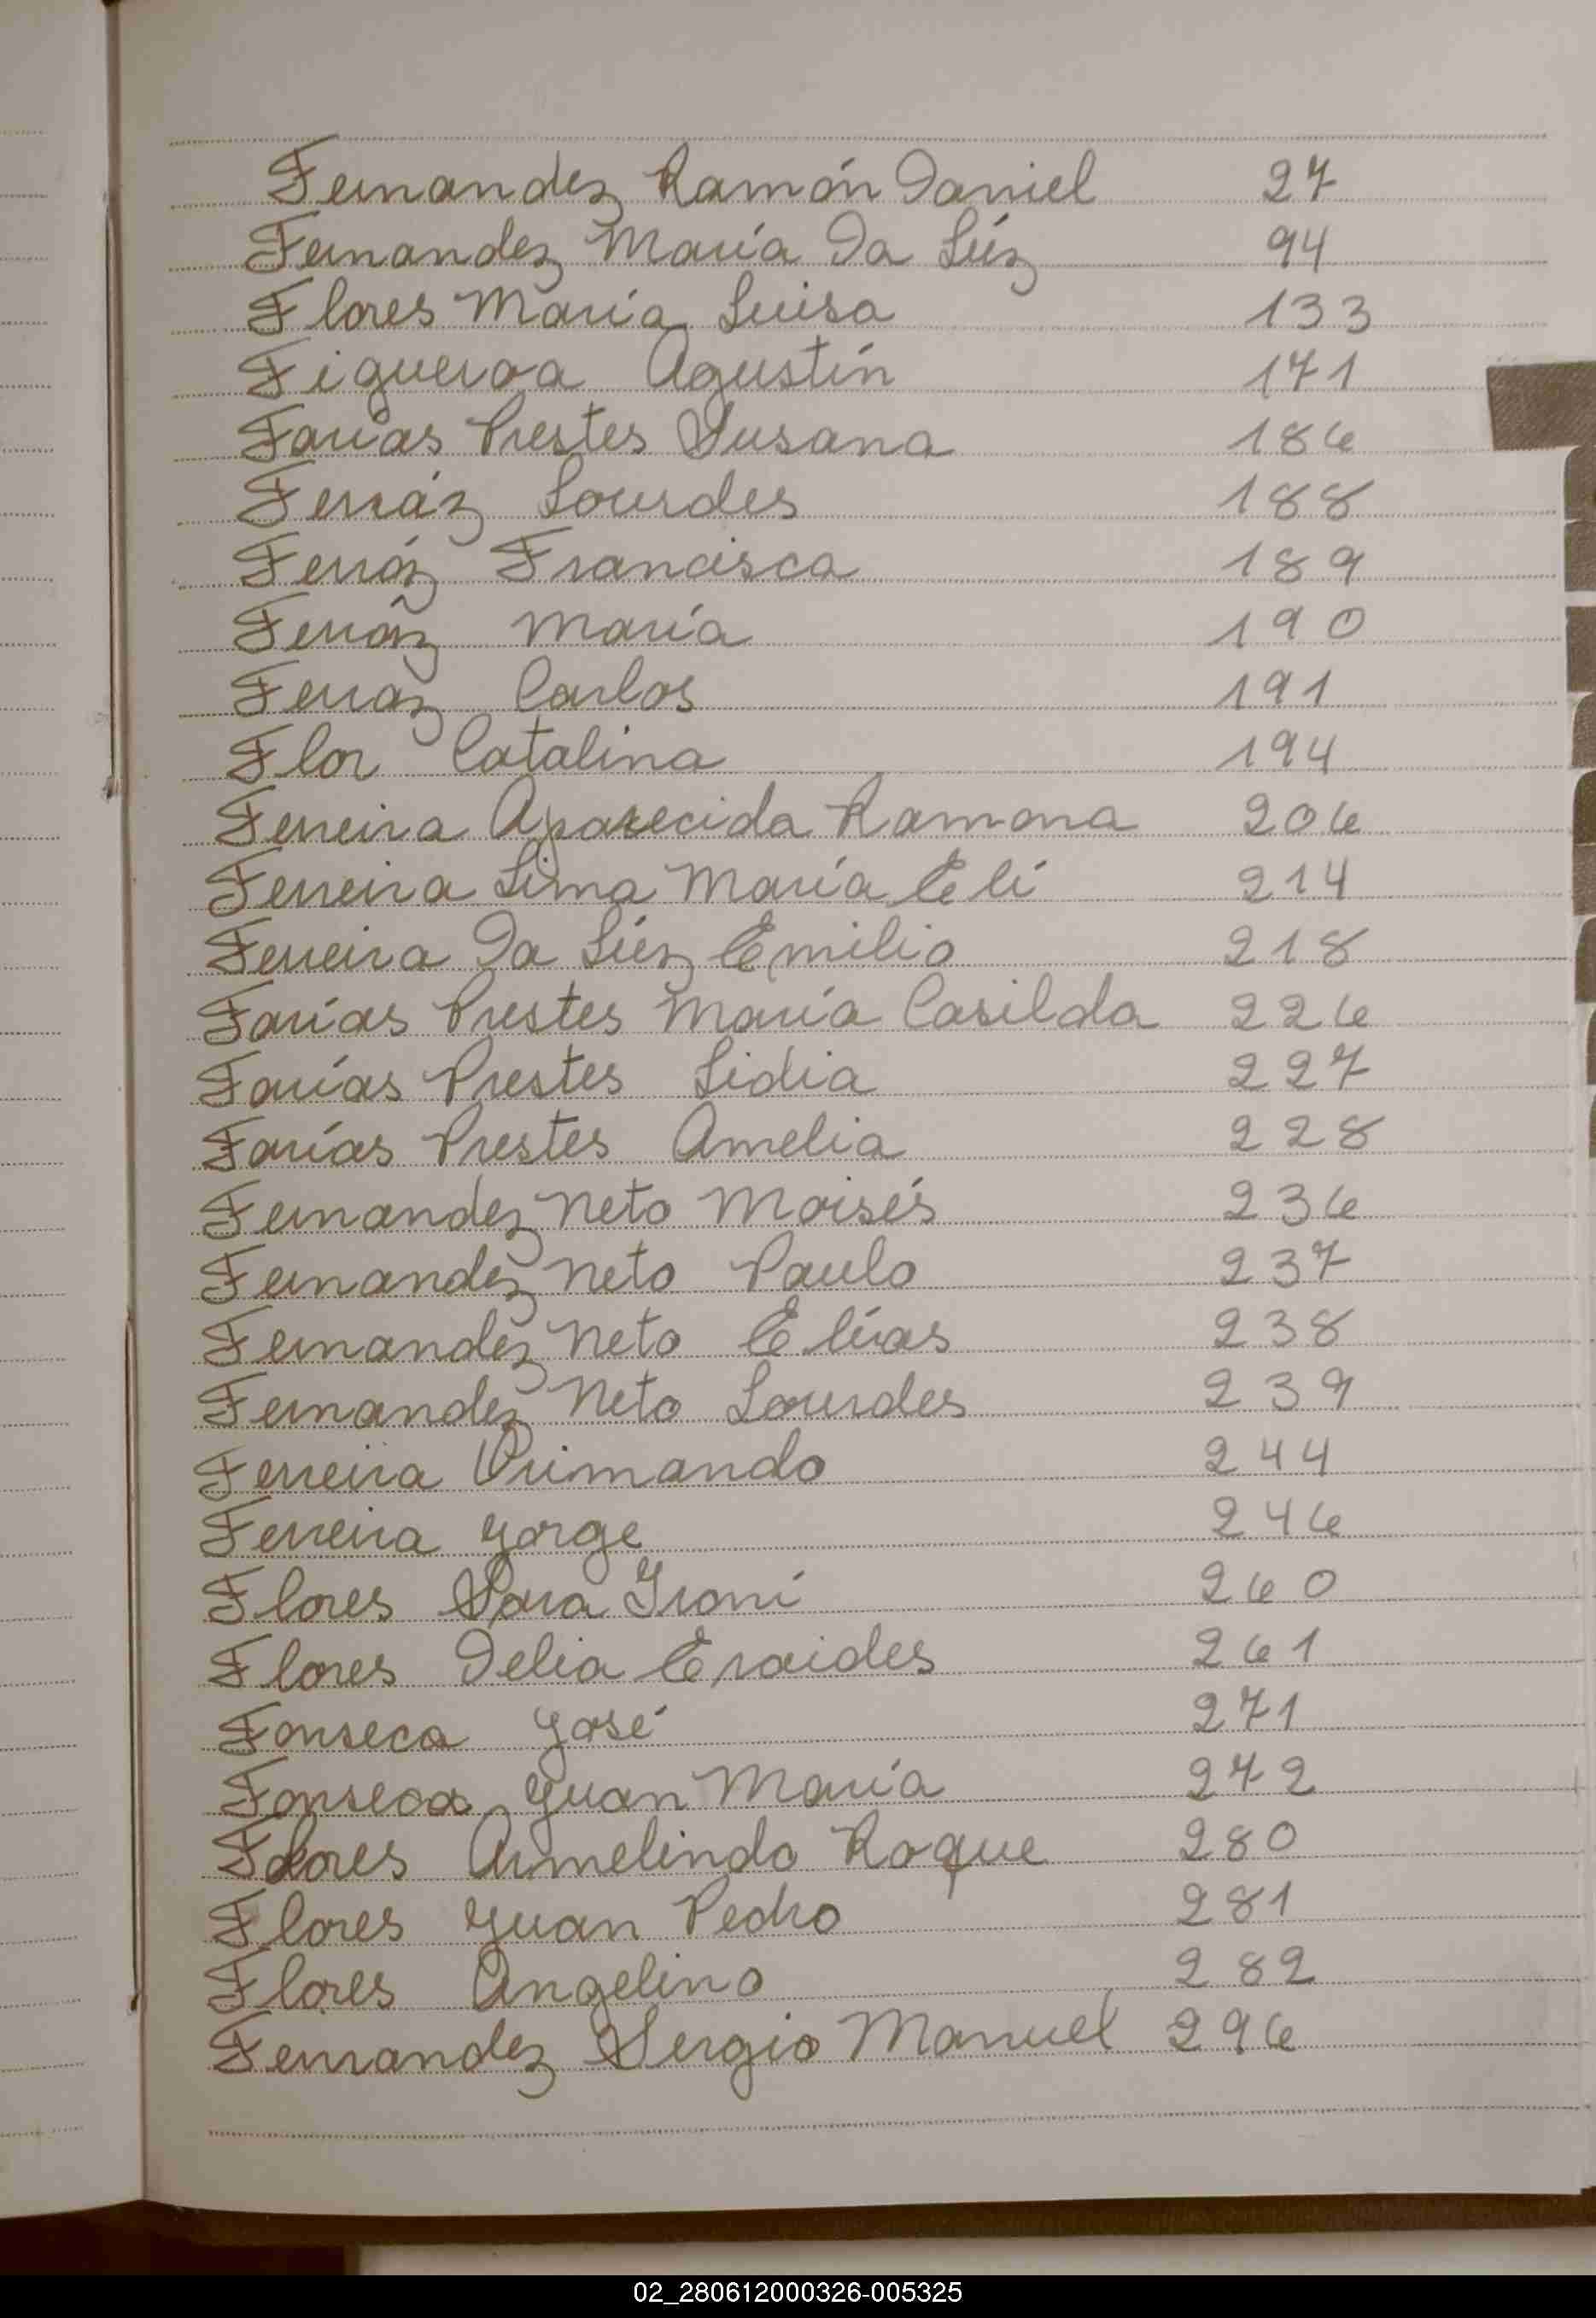 Fernandez Ramón Daniel 27
Fernandez María Da Lúz 94
Flores María Luisa 133
Figueroa Agustín 171
Farías Prestes Susana 186
Ferráz Lourdes 188
Ferráz Francisca 189
Ferráz María 190
Ferraz Carlos 191
Flor Catalina 194
Ferreira Aparecida Ramona 206
Ferreira Lima María Elí 214
Ferreira Da Lúz Emilio 218
Farías Prestes María Casilda 226
Farías Prestes Lidia 227
Farías Prestes Amelia 228
Fernandez Neto Moisés 236
Fernandez Neto Paulo 237
Fernandez Neto Elías 238
Fernandez Neto Lourdes 239
Ferreira Primando 244
Ferreira Jorge 246
Flores Sara Ironí 260
Flores Delia Eraides 261
Fonseca José 271
Fonseca Juan María 272
Flores Armelindo Roque 280
Flores Juan Pedro 281
Flores Angelino 282
Fernandez Sergio Manuel 296
02_280612000326-005325